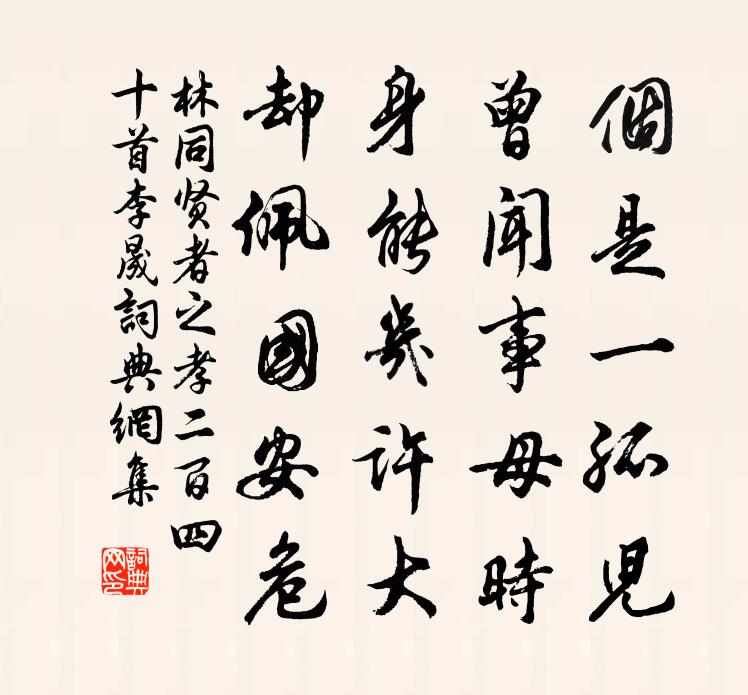 個是一孤児
曾聞事母時
身能幾許大
却佩國安危
林同贤者之孝二百四
十首李晟詞典網集
詞典
网印